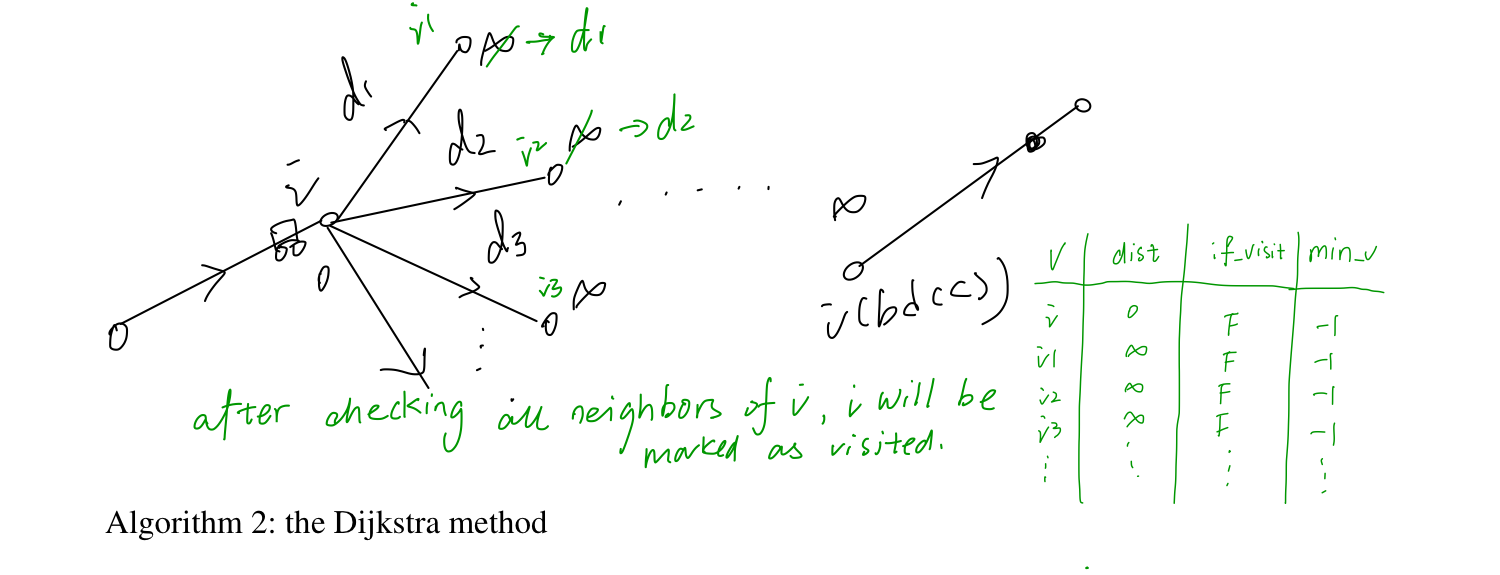 v̄1 ∞ → d1
d1
d2 v̄2 ∞ → d2
v̄
0
d3
v̄3 ∞
∞
v̄(bd(c))
V dist if_visit min_v
v̄ 0 F -1
v̄1 ∞ F -1
v̄2 ∞ F -1
v̄3 ∞ F -1
⋮ ⋮ ⋮ ⋮
after checking all neighbors of v̄, i will be
marked as visited.
Algorithm 2: the Dijkstra method